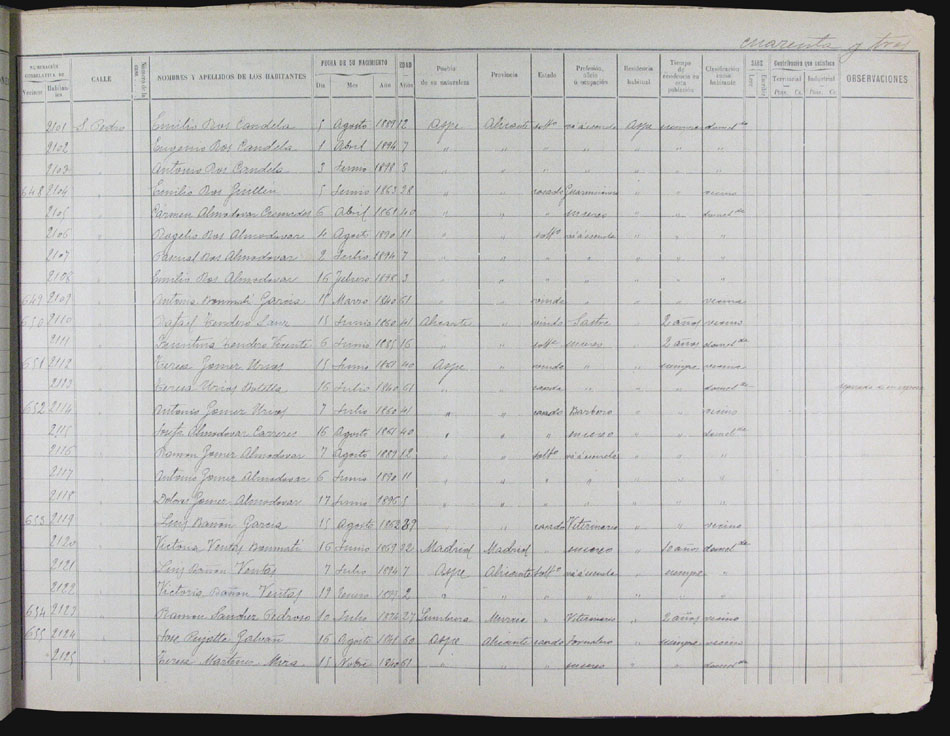 cuarenta y tres
NUMERACIÓN CORRELATIVA DE
Vecinos Habitantes
CALLE
NOMBRES Y APELLIDOS DE LOS HABITANTES
FECHA DE SU NACIMIENTO
Dia Mes Año
EDAD Años
Pueblo de su naturaleza
Provincia
Estado
Profesión, oficio ú ocupación
Residencia habitual
Tiempo de residencia en esta población
Clasificación como habitante
SABE
Leer Escribir
Contribución que satisface
Territorial Industrial
Ptas. Cs. Ptas. Cs.
OBSERVACIONES
2101 S. Pedro Emilio Bos Candela 5 Agosto 1889 12 Aspe Alicante soltº va á escuela Aspe siempre domcdo
2102 " Eugenio Bos Candela 1 Abril 1894 7 " " " " " " "
2103 " Antonio Bos Candela 3 Junio 1898 3 " " " " " "
648 2104 " Emilio Bos Guillen 5 Junio 1863 38 " " casado " " vecino
2105 " Carmen Almodovar 6 Abril 1861 40 " " " sus cseo " " domcda
2106 " Rogelio Bos Almodovar 4 Agosto 1890 11 " " soltº va á escuela " " "
2107 " Pascual Bos Almodovar 2 Julio 1894 7 " " " " " " "
2108 " Emilio Bos Almodovar 16 Febrero 1898 3 " " " " "
649 2109 " Antonia Bonmati Garcia 18 Marzo 1840 61 " " viuda " " vecina
650 2110 " Rafael Tendero Sanz 15 Junio 1860 41 Alicante " viudo Sastre " 2 años vecino
2111 " Faustina Tendero Vicente 6 Junio 1885 16 " " soltª sus cseo " 2 años domcda
651 2112 " Teresa Gomez Urios 15 Junio 1861 40 Aspe " viuda " " siempre vecina
2113 " Teresa Urios Botella 16 Julio 1840 61 " " casada " " " domcda
652 2114 " Antonio Gomez Urios 7 Julio 1860 41 " " casado Barbero " " vecino
2115 " Josefa Almodovar Carreres 16 Agosto 1861 40 " " " sus cseo " " domcda
2116 " Ramon Gomez Almodovar 7 Agosto 1889 12 " " soltº va á escuela " " "
2117 " Antonio Gomez Almodovar 6 Junio 1890 11 " " " " " " "
2118 " Dolores Gomez Almodovar 17 Junio 1896 5 " " " " " "
653 2119 " Luis Bañon Garcia 15 Agosto 1862 39 " " casado Veterinario " " vecino
2120 " Victoria Ventas Bonmati 16 Junio 1869 32 Madrid Madrid " sus cseo " 10 años domcda
2121 " Luis Bañon Ventas 7 Julio 1894 7 Aspe Alicante soltº va á escuela " siempre "
2122 " Victoria Bañon Ventas 19 Enero 1899 2 " " " " " " "
654 2123 " Ramon Sanchez Pedroso 10 Julio 1874 27 Murcia " Veterinario " 2 años vecino
655 2124 " Jose 16 Agosto 1841 60 Aspe Alicante casado Jornalero " siempre vecino
2125 " Teresa Martinez Mira 15 Nobre 1840 61 " " " sus cseo " " domcda